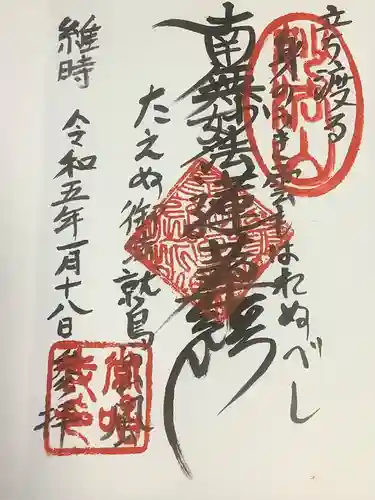 立ち渡る
身のうき雲もはれぬべし
南無妙法蓮華経
たえぬ御法の鷲の山風
維時
令和五年一月十八日
参拝